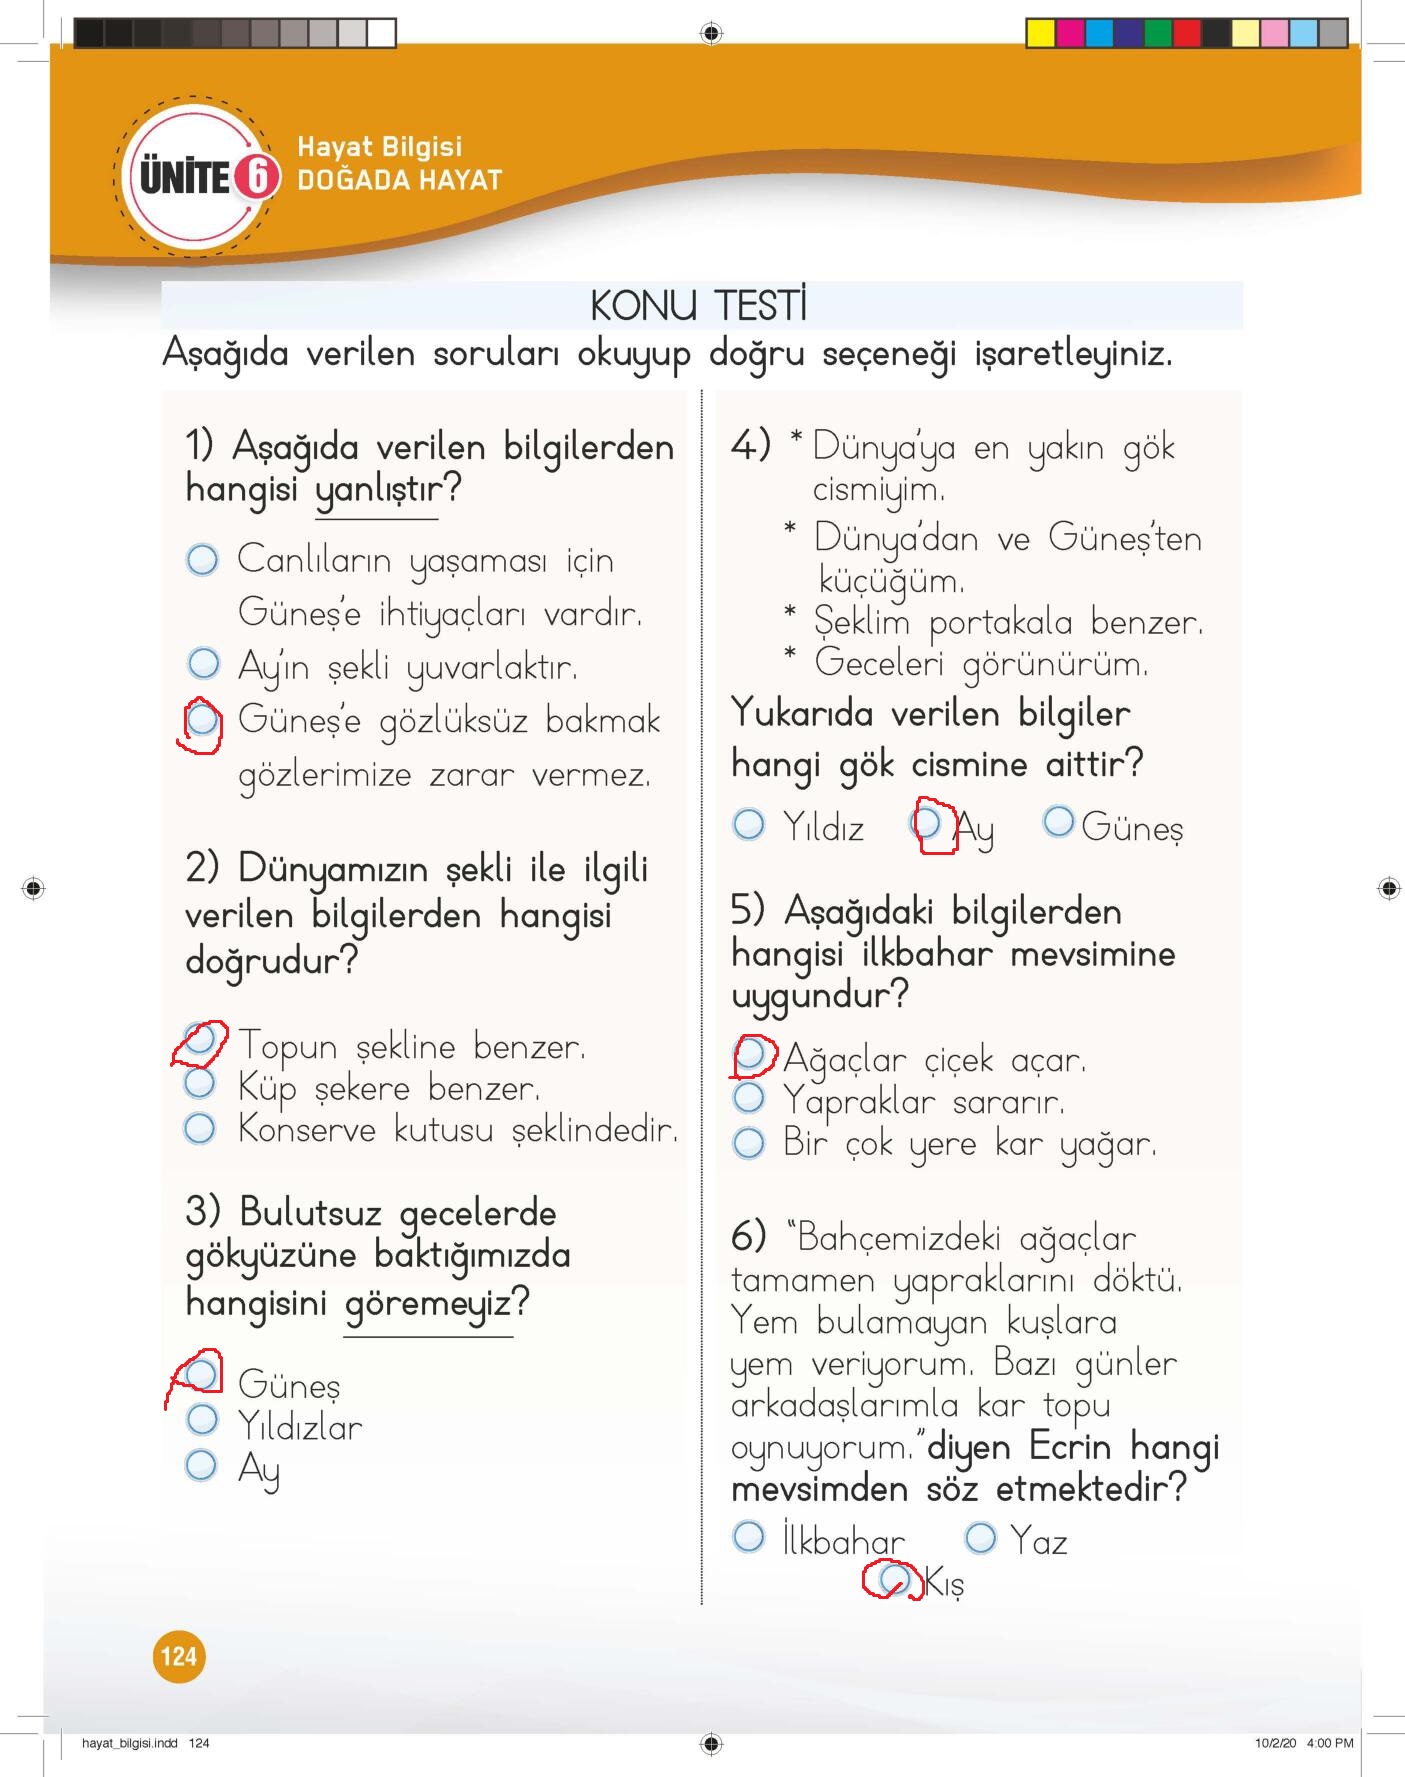 ÜNİTE 6
Hayat Bilgisi
DOĞADA HAYAT
KONU TESTİ
Aşağıda verilen soruları okuyup doğru seçeneği işaretleyiniz.
1) Aşağıda verilen bilgilerden
hangisi yanlıştır?
Canlıların yaşaması için
Güneş'e ihtiyaçları vardır.
Ay'ın şekli yuvarlaktır.
Güneş'e gözlüksüz bakmak
gözlerimize zarar vermez.
2) Dünyamızın şekli ile ilgili
verilen bilgilerden hangisi
doğrudur?
Topun şekline benzer.
Küp şekere benzer.
Konserve kutusu şeklindedir.
3) Bulutsuz gecelerde
gökyüzüne baktığımızda
hangisini göremeyiz?
Güneş
Yıldızlar
Ay
4) * Dünya'ya en yakın gök
cismiyim.
* Dünya'dan ve Güneş'ten
küçüğüm.
* Şeklim portakala benzer.
* Geceleri görünürüm.
Yukarıda verilen bilgiler
hangi gök cismine aittir?
Yıldız Ay Güneş
5) Aşağıdaki bilgilerden
hangisi ilkbahar mevsimine
uygundur?
Ağaçlar çiçek açar.
Yapraklar sararır.
Bir çok yere kar yağar.
6) "Bahçemizdeki ağaçlar
tamamen yapraklarını döktü.
Yem bulamayan kuşlara
yem veriyorum. Bazı günler
arkadaşlarımla kar topu
oynuyorum." diyen Ecrin hangi
mevsimden söz etmektedir?
İlkbahar Yaz
Kış
124
hayat_bilgisi.indd 124 10/2/20 4:00 PM